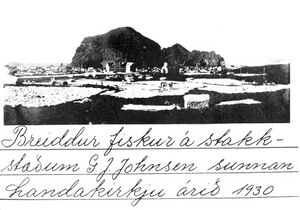 Breiddur fiskur á stakk-
stæðum G J Johnsen sunnan
handakirkju árið 1930